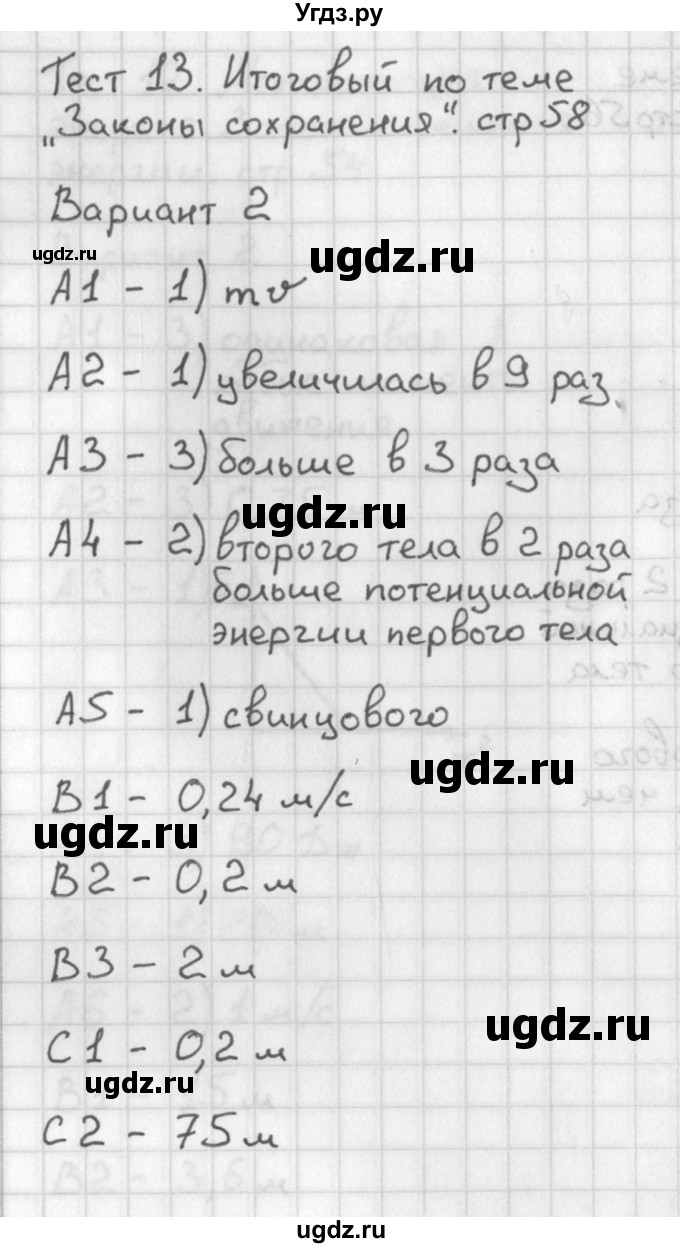 Угдз.ру
Тест 13. Итоговый по теме
„Законы сохранения“. стр 58
Вариант 2
ugdz.ru
ugdz.ru
А1 - 1) mv
А2 - 1) увеличилась в 9 раз.
А3 - 3) больше в 3 раза
ugdz.ru
А4 - 2) второго тела в 2 раза
больше потенциальной
энергии первого тела
А5 - 1) свинцового
ugdz.ru
В1 - 0,24 м/с
ugdz.ru
В2 - 0,2 м
В3 - 2 м
ugdz.ru
С1 - 0,2 м
ugdz.ru
С2 - 75 м
ugdz.ru